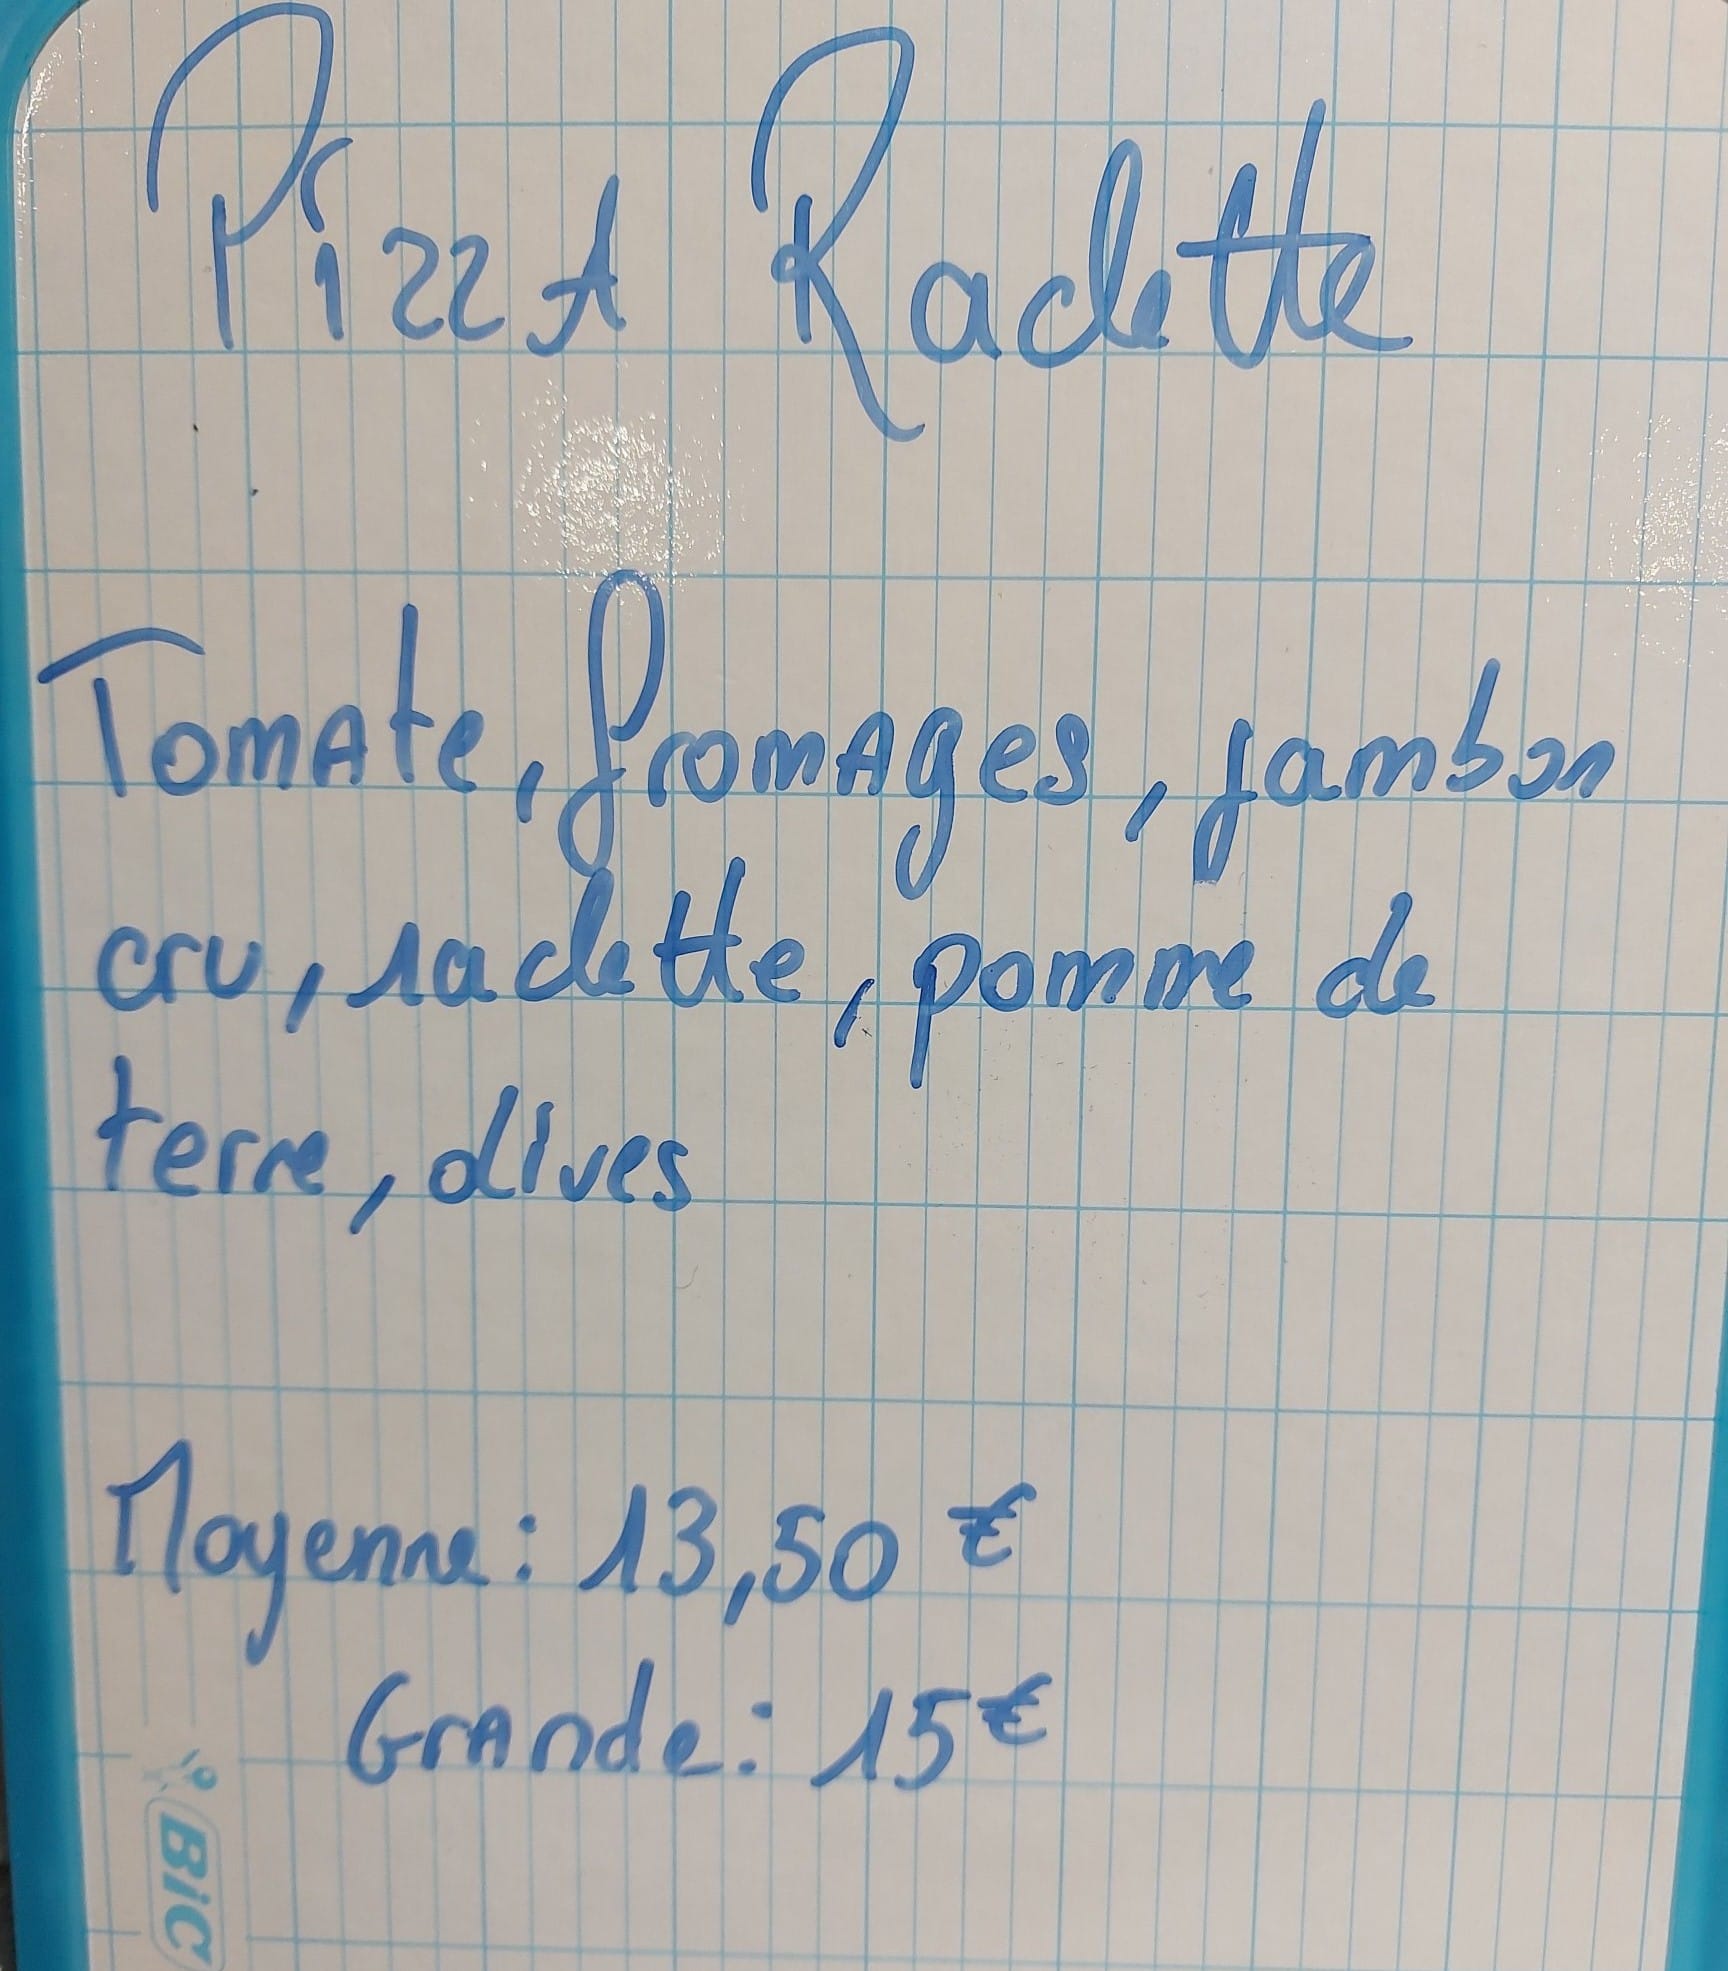 PizzA Raclette
TomAte, fromAges, jambon
cru, raclette, pomme de
terre, olives
Moyenne : 13,50 €
GrAnde : 15 €
BiC